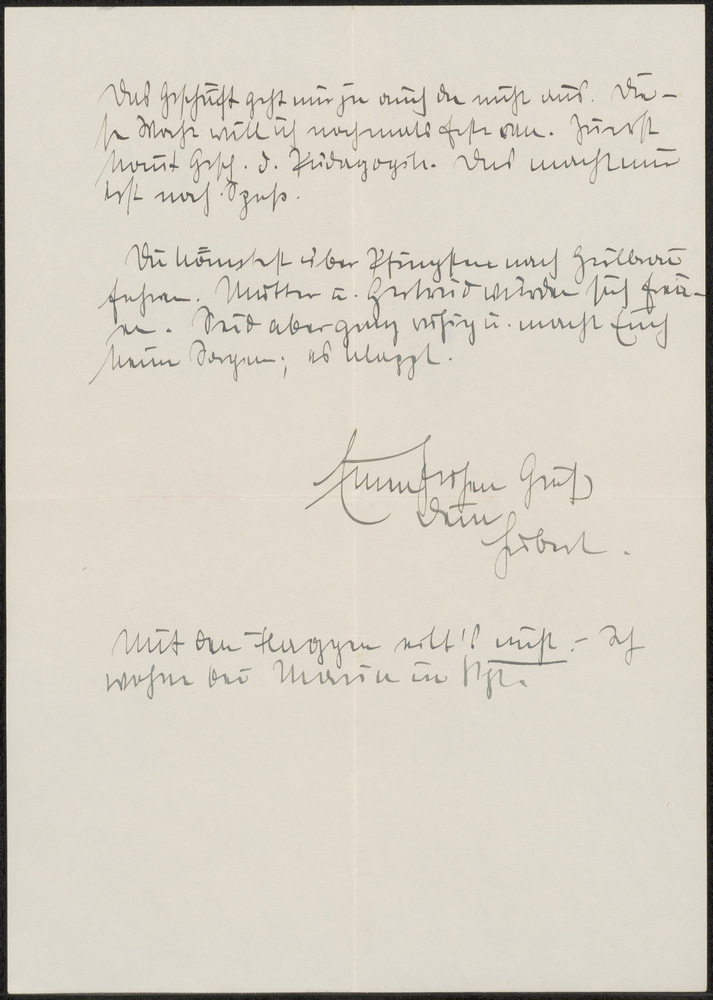 Das Geschäft geht mir ja auch da nicht aus. Die-
se Woche will ich nochmals feste ran. Zuerst
kommt Gesch. d. Pädagogik. Das macht mir
erst noch Spaß.
Du könntest über Pfingsten nach Heilbronn
fahren. Mutter u. Gertrud würden sich freu-
en. Seid aber ganz ruhig u. macht Euch
keine Sorgen; es klappt.
Einen frohen Gruß
Dein
Hubert.
Mit den Flaggen eilt's nicht. - Ich
wohne bei Maria in